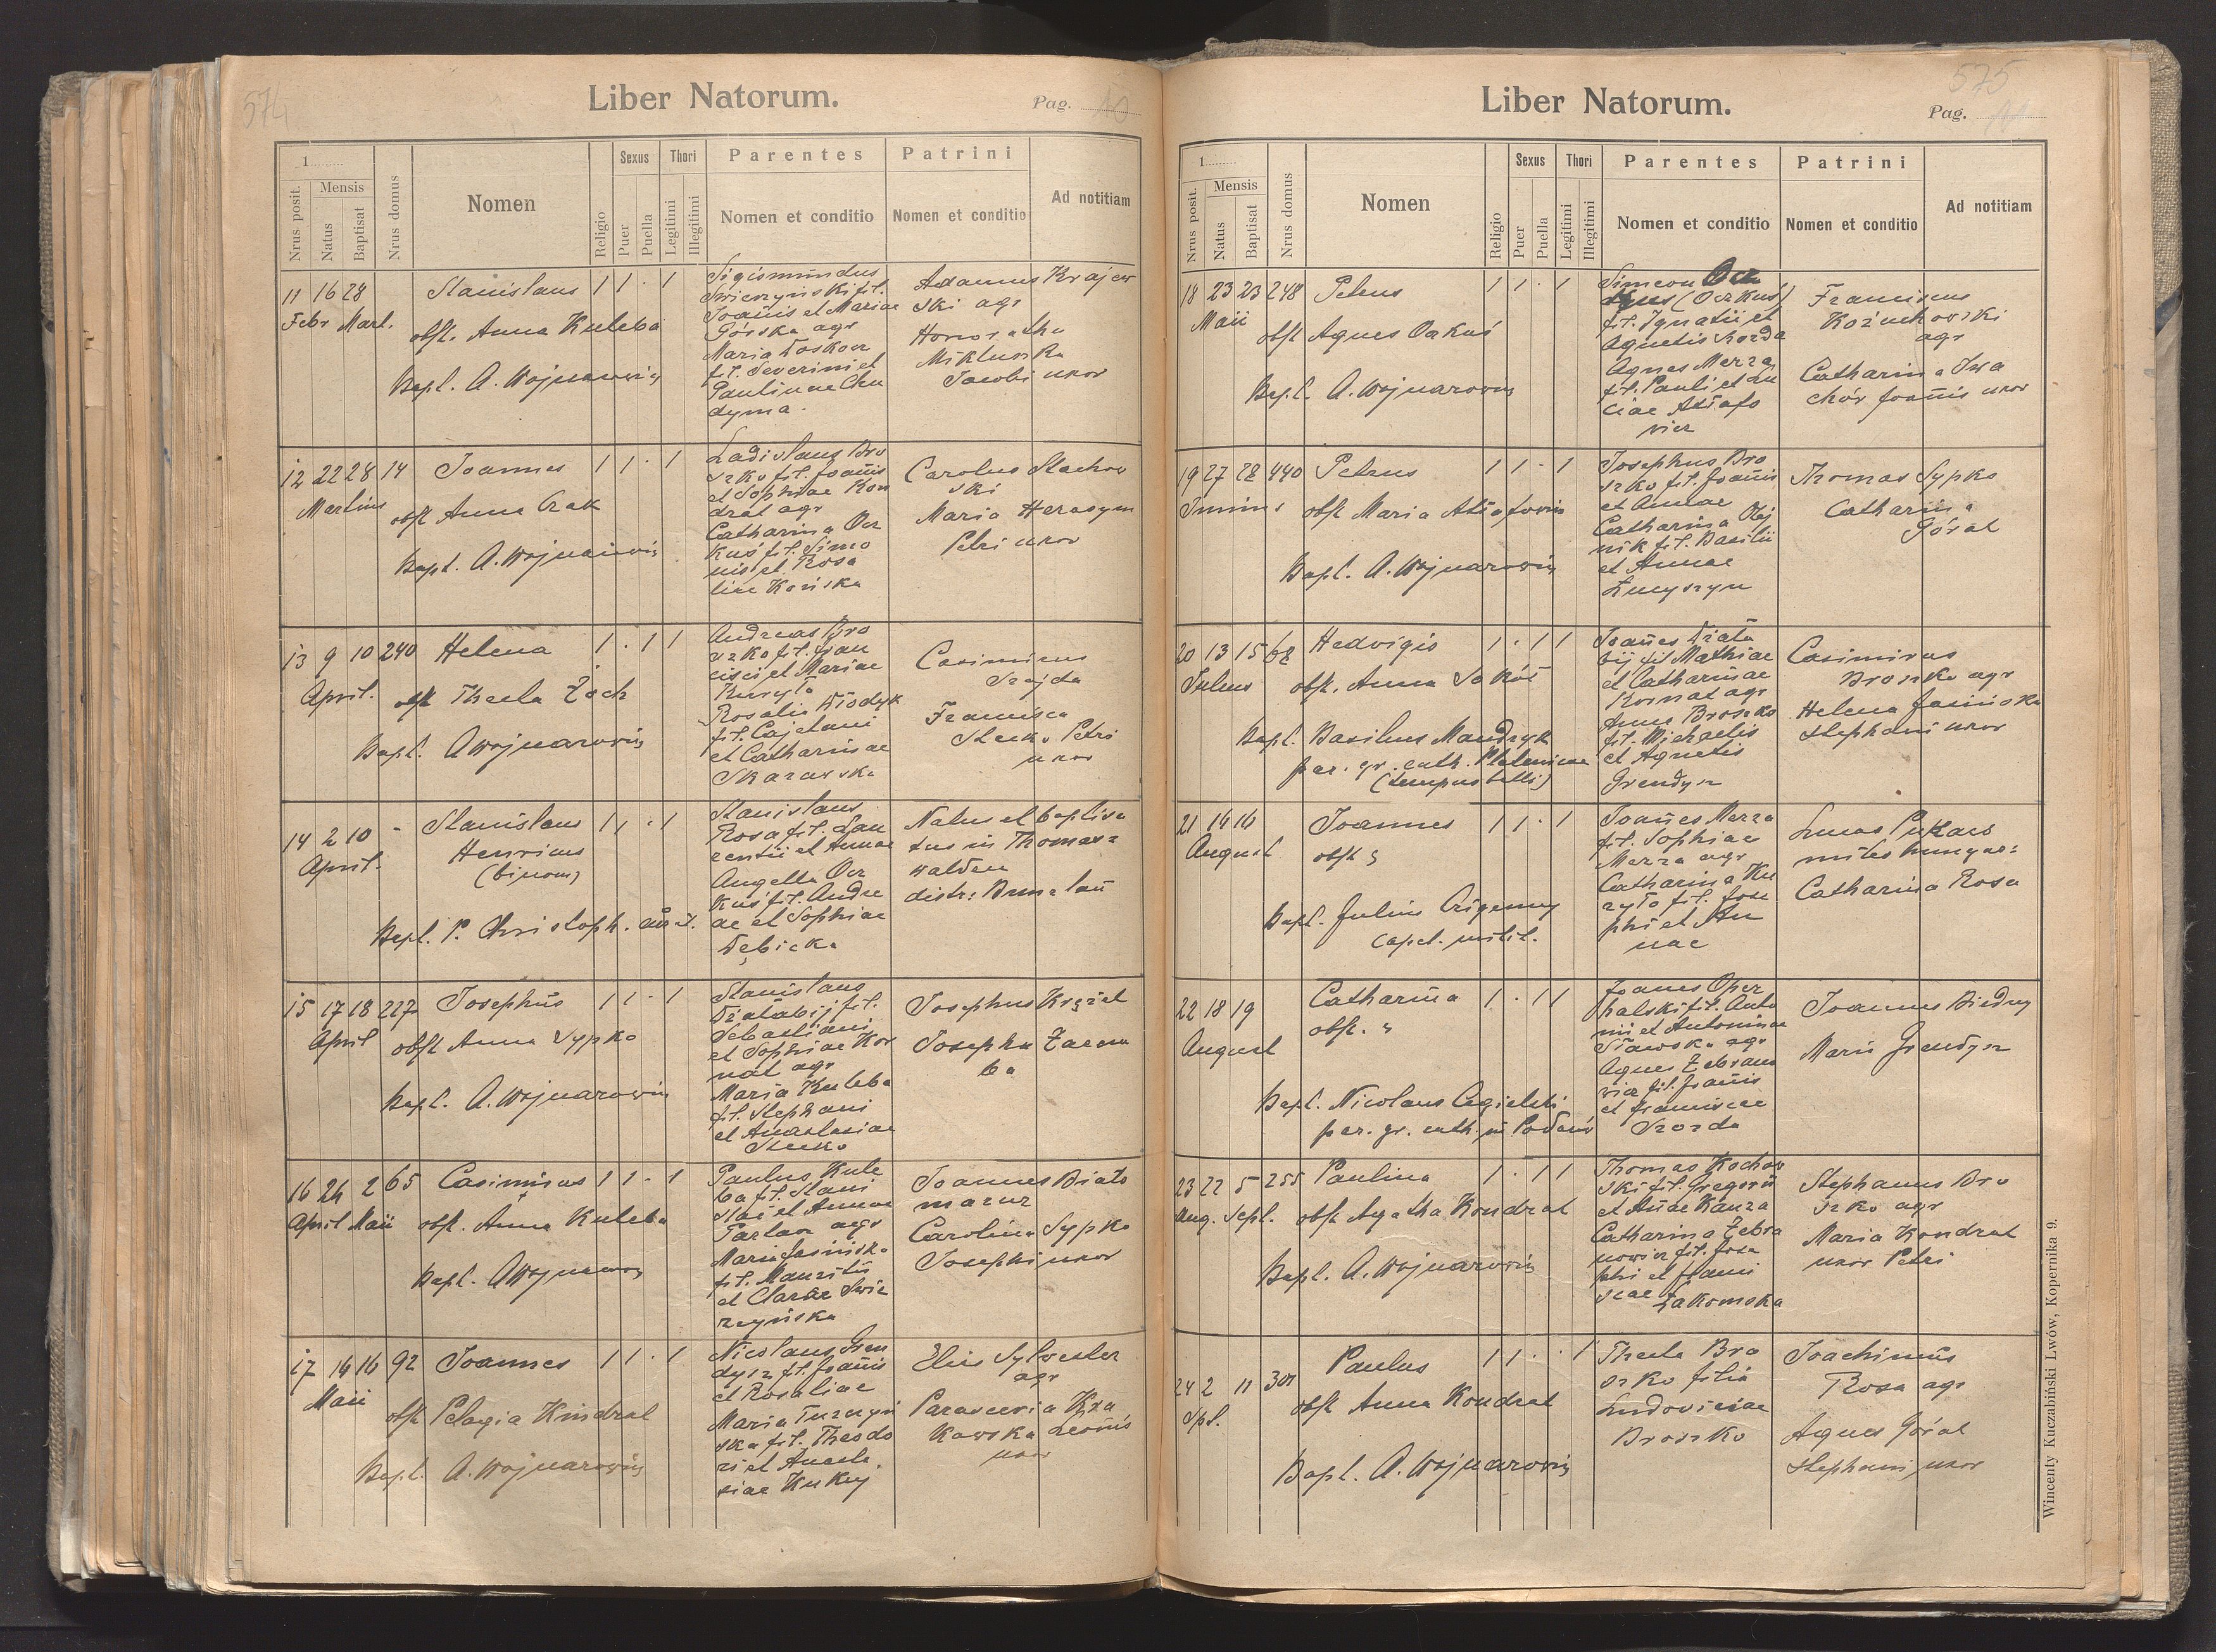 574
Liber Natorum.
Pag. 10
1
Nrus posit.
Mensis
Natus
Baptisat
Nrus domus
Nomen
Religio
Sexus
Puer
Puella
Thori
Legitimi
Illegitimi
Parentes
Nomen et conditio
Patrini
Nomen et conditio
Ad notitiam
11 16 28
Febr Mart.
Stanislaus 1 1 · 1
obst. Anna Kuleba
Bapt. A. Wojnarowicz
Sigismundus
Swierzynski fil.
Joannis et Mariae
Górska agr
Maria
fil. Severini et
Paulinae Chu
dyma.
Adamus Krajew
ski agr
Honoratha
Miklunka
Jacobi uxor
12 22 28 14
Martius
Joannes 1 1 · 1
obst Anna Czak
Bapt. A. Wojnarowicz
Ladislaus Bro
szko fil. Joannis
et Sophiae Kon
drat agr
Catharina Ocz
kuś fil. Simo
nis et Rosa
liae Końska
Carolus Stachow
ski
Maria Herasym
Petri uxor
13 9 10 240
April.
Helena 1 · 1 1
obst Thecla Zach
Bapt. A Wojnarowicz
Andreas Bro
szko fil. Fran
cisci et Mariae
Kuryło
Rosalia Włodyk
fil. Cajetani
et Catharinae
Skarawska
Casimirus
Szajda
Francisca
Stecko Petri
uxor
14 2 10 -
April.
Stanislaus 1 1 · 1
Henricus
(binom)
Bapt. P. Christoph.
Stanislaus
Rosa fil. Lau
rentii et Annae
Angella Ocz
kuś fil. Andre
ae et Sophiae
Dębicka
Natus et baptisa
tus in Thomas=
walden
distr: Bunzlau
15 17 18 227
April
Josephus 1 1 · 1
obst Anna Sypko
Bapt. A. Wojnarowicz
Stanislaus
Działabij fil.
Sebastiani
et Sophiae Kor
nat agr
Maria Kuleba
fil. Stephani
et Anastasiae
Stecko
Josephus Krzził
Josepha Zarem
ba
16 24 2 65
April Maii
Casimirus 1 1 · 1
obst. Anna Kuleba
Bapt. A Wojnarowicz
Paulus Kule
ba fil. Stani
slai et Annae
Parlac agr
Maria Jasinska
fil. Mauritii
et Clarae Swie
rzyńska
Joannes Biało
mazur
Carolina Sypko
Josephi uxor
17 14 16 92
Maii
Joannes 1 1 · 1
obst Pelagia Kindrat
Bapt. A. Wojnarowicz
Nicolaus Gren
dysz fil. Joannis
et Rosaliae
Maria Turczyń
ska fil. Theodo
ri et Anasta.
siae Kukey
Elias Sylvester
agr
Parascevia Kra
kowska Leonis
uxor
575
Liber Natorum.
Pag. 11
1
Nrus posit.
Mensis
Natus
Baptisat
Nrus domus
Nomen
Religio
Sexus
Puer
Puella
Thori
Legitimi
Illegitimi
Parentes
Nomen et conditio
Patrini
Nomen et conditio
Ad notitiam
18 23 23 248
Maii
Petrus 1 1 · 1
obst Agnes Oakuś
Bapt. A. Wojnarowicz
Simeon Ocz
(Oczkuś)
fil. Ignatii et
Agnetis Szozda
Agnes Merza
fil. Pauli et Lu
ciae
Franciscus
Kożuchowski
agr
Catharina Iwa
chów Joannis uxor
19 27 28 440
Junius
Petrus 1 1 · 1
obst Maria
Bapt. A. Wojnarowicz
Josephus Bro
szko fil. Joannis
et Annae
Catharina Olej
nik fil. Basilii
et Annae
Łucyszyn
Thomas Sypko
Catharina
Góral
20 13 15 68
Julius
Hedvigis 1 · 1 1
obst. Anna Sokół
Bapt. Basilius Mandryk
par. gr. cath. Plotenicae
(tempus belli)
Joannes Działa
bij fil Mathiae
et Catharinae
Kornat agr
Anna Broszko
fil. Michaelis
et Agnetis
Grendysz
Casimirus
Broszko agr
Helena Jasińska
Stephani uxor
21 14 16
August
Joannes 1 1 · 1
obst "
Bapt. Julius
Capel. milit.
Joannes Merza
fil. Sophiae
Merza agr
Catharina Ku
ryło fil. Jose
phi et An
nae
Lucas
miles hungar:
Catharina Rosa
22 18 19
August
Catharina 1 · 1 1
obst. "
Bapt. Nicolaus Cegielski
par. gr. cath. in
Joannes Oper
halski fil. Anto
nii et Antoninae
Sławska agr
Agnes Zebrano
wicz fil. Joannis
et Franciscae
Szozda
Joannes Biedny
Maria Grendysz
23 22 5 255
Aug. Sept.
Paulina 1 · 1 1
obst Agatha Kondrat
Bapt. A. Wojnarowicz
Thomas Kochow
ski fil. Gregorii
et Annae Kanza
Catharina Zebra
nowicz fil. Jose
phi et Franci
scae Łakomska
Stephanus Bro
szko agr
Maria Kondrat
uxor Petri
24 2 11 301
Spt.
Paulus 1 1 · · 1
obst Anna Kondrat
Bapt. A. Wojnarowicz
Thecla Bro
szko filia
Ludovicae
Broszko
Joachimus
Rosa agr
Agnes Góral
Stephani uxor
Wincenty Kuczabiński Lwów, Kopernika 9.